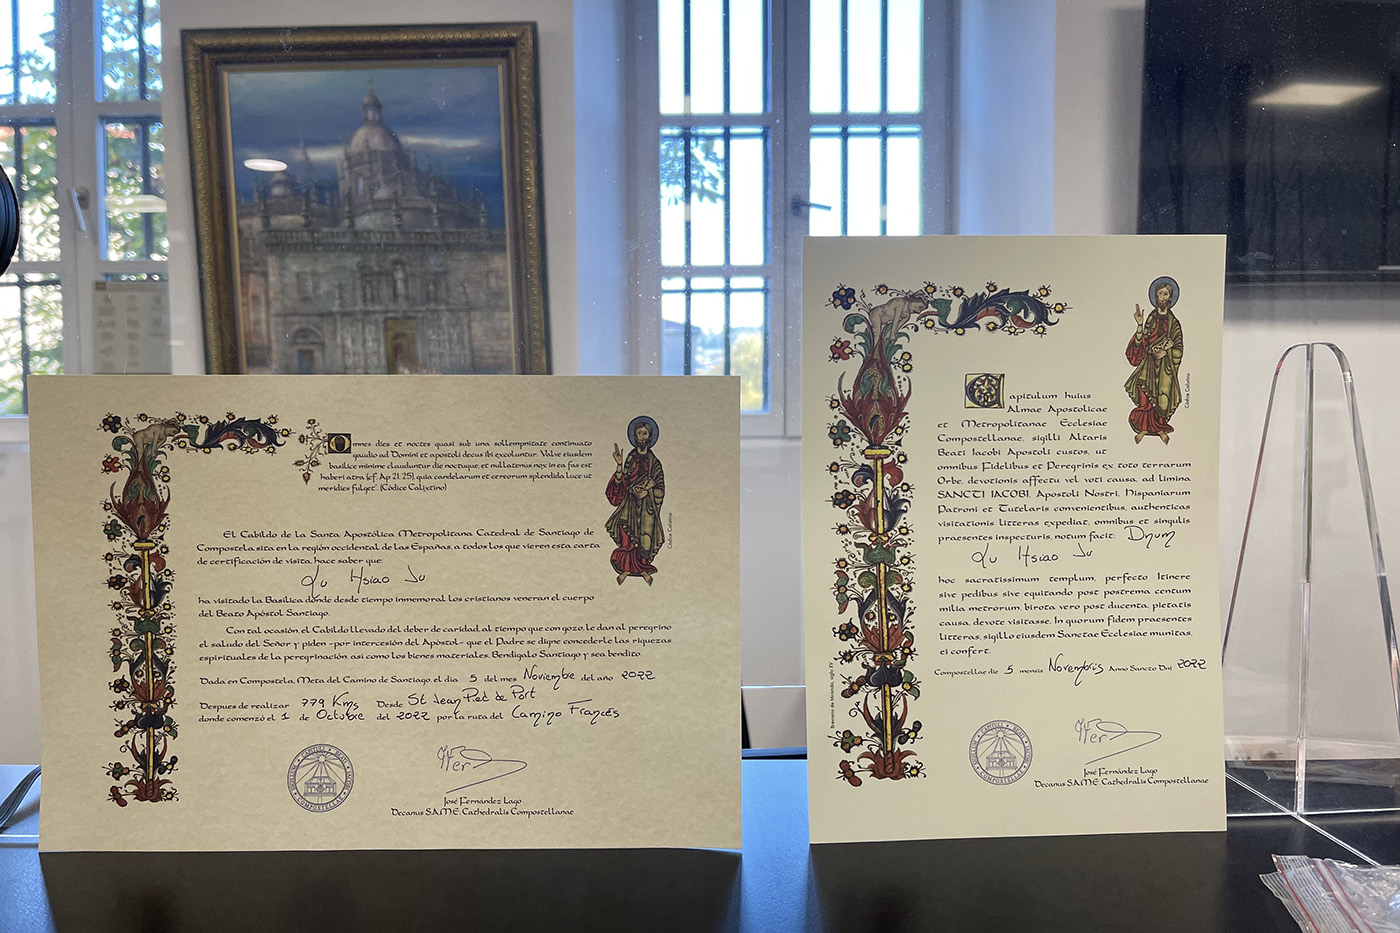 Omnes dies et noctes quasi sub una sollempnitate continuato
gaudio ad Domini et apostoli decus ibi excoluntur. Valve eiusdem
basilice minime clauduntur die noctuque, et nullatenus nox in ea fas est
haberi atra [cf. Ap 21, 25], quia candelarum et cereorum splendida luce ut
meridies fulget". (Códice Calixtino)
Códice Calixtino
El Cabildo de la Santa Apostólica Metropolitana Catedral de Santiago de
Compostela sita en la región occidental de las Españas, a todos los que vieren esta carta
de certificación de visita, hace saber que:
Lu Hsiao Ju
ha visitado la Basílica donde desde tiempo inmemorial los cristianos veneran el cuerpo
del Beato Apóstol Santiago.
Con tal ocasión, el Cabildo llevado del deber de caridad, al tiempo que con gozo, le dan al peregrino
el saludo del Señor y piden -por intercesión del Apóstol- que el Padre se digne concederle las riquezas
espirituales de la peregrinación, así como los bienes materiales. Bendígalo Santiago y sea bendito.
Dada en Compostela, Meta del Camino de Santiago, el día 5 del mes Noviembre del año 2022
Despues de realizar 779 Kms Desde St Jean Pied de Port
donde comenzó el 1 de Octubre del 2022 por la ruta del Camino Francés
José Fernández Lago
Decanus S.A.M.E. Cathedralis Compostellanae
Capitulum huius
Almae Apostolicae
et Metropolitanae Ecclesiae
Compostellanae, sigilli Altaris
Beati Iacobi Apostoli custos, ut
omnibus Fidelibus et Peregrinis ex toto terrarum
Orbe, devotionis affectu vel voti causa, ad limina
SANCTI IACOBI, Apostoli Nostri, Hispaniarum
Patroni et Tutelaris convenientibus, authenticas
visitationis litteras expediat, omnibus et singulis
praesentes inspecturis, notum facit: Dnum
Lu Hsiao Ju
hoc sacratissimum templum, perfecto Itinere
sive pedibus sive equitando post postrema centum
milia metrorum, birota vero post ducenta, pietatis
causa, devote visitasse. In quorum fidem praesentes
litteras, sigillo eiusdem Sanctae Ecclesiae munitas,
ei confert.
Compostellae die 5 mensis Novembris Anno Sancto Dni 2022
José Fernández Lago
Decanus S.A.M.E. Cathedralis Compostellanae
Códice Calixtino
Breviario de Miranda, siglo XV